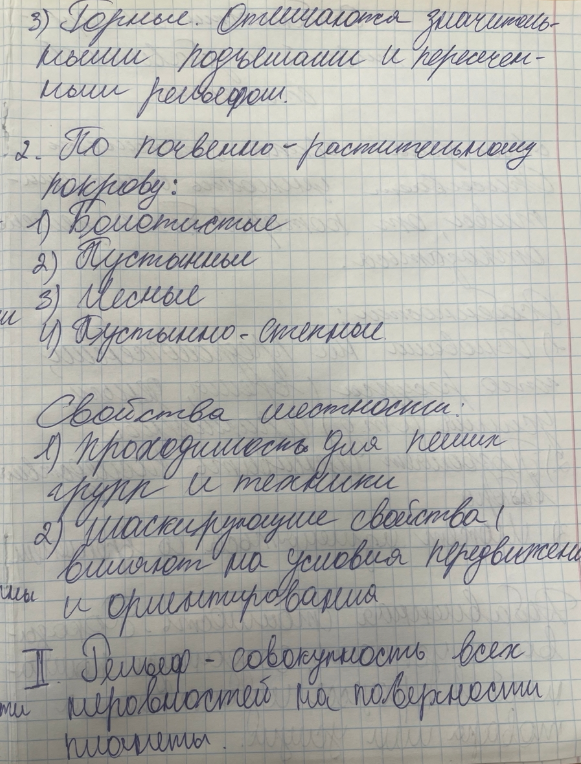 3) Горные. Отличаются значитель-
ными подъемами и пересечен-
ным рельефом.
2. По почвенно-растительному
покрову:
1) Болотистые
2) Пустынные
3) Лесные
4) Пустынно-степные
Свойства местности:
1) проходимость для пеших
групп и техники
2) маскирующие свойства (
влияют на условия передвижени
и ориентирования
II. Рельеф - совокупность всех
неровностей на поверхности
планеты.